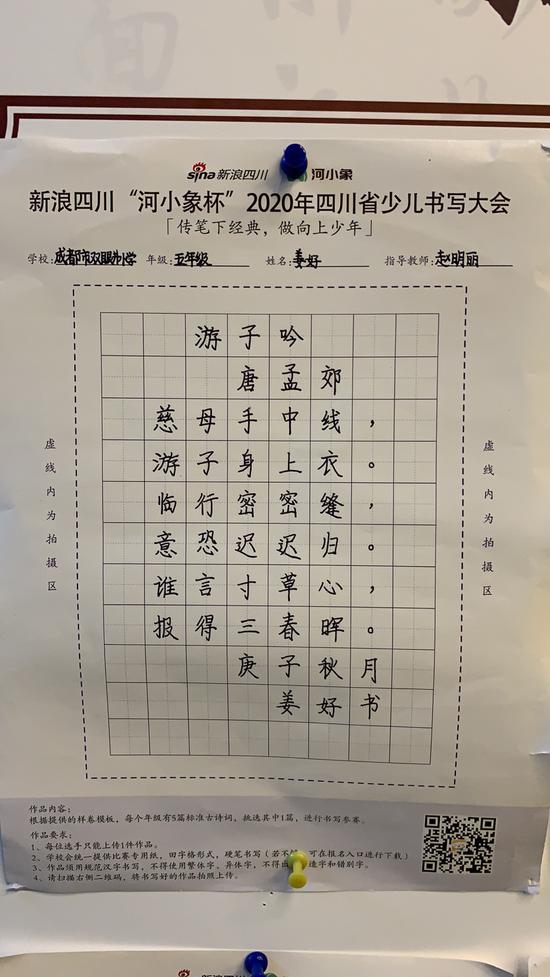 sina 新浪四川 河小象
新浪四川“河小象杯”2020年四川省少儿书写大会
「传笔下经典，做向上少年」
学校:成都市双眼井小学 年级:五年级 姓名:姜好 指导教师:赵明丽
游子吟
唐孟郊
慈母手中线，
游子身上衣。
临行密密缝，
意恐迟迟归。
谁言寸草心，
报得三春晖。
庚子秋月
姜好书
虚线内为拍摄区
虚线内为拍摄区
作品内容:
根据提供的样卷模板，每个年级有5篇标准古诗词，挑选其中1篇，进行书写参赛。
作品要求:
1、每位选手只能上传1件作品。
2、学校会统一提供比赛专用纸，田字格形式，硬笔书写（若不 可在报名入口进行下载）
3、作品须用规范汉字书写，不得使用繁体字、异体字，不得出 造字和错别字。
4、请扫描右侧二维码，将书写好的作品拍照上传。
新浪四川 河小象